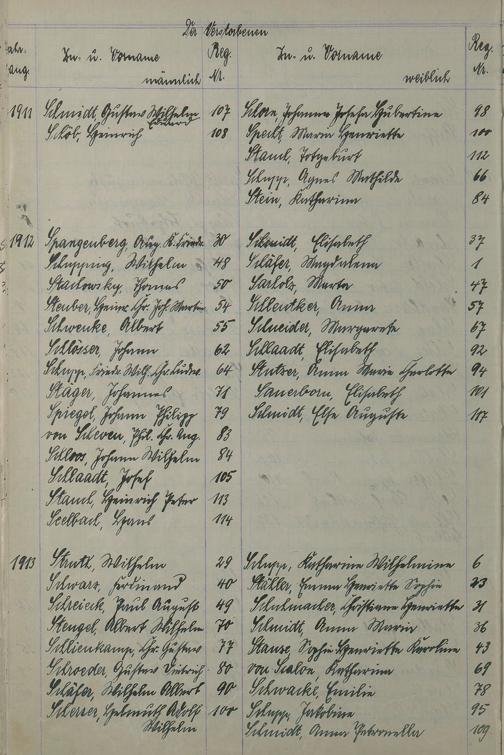 Die Verstorbenen
Jahr-
gang
Zu- u. Vorname
männlich
Reg.
Nr.
Zu- u. Vorname
weiblich
Reg.
Nr.
1911 Schmidt, Gustav Wilhelm 107 Johanna Josefa Hubertine 98
Eduard
Schöb, Heinrich 108 Specht, Maria Henriette 100
Staml, Totgeburt 112
Schupp, Agnes Mathilde 66
Stein, Katharina 84
1912 Spangenberg, Aug. K. Friedr. 30 Schmidt, Elisabeth 37
Schupping, Wilhelm 48 Schäfer, Magdalena 1
Stachowsky, Thomas 50 Martha 47
Steuber, Heinr. Chr. Joh. Martin 54 Anna 57
Schwenke, Albert 55 Schneider, Margarete 67
Schlosser, Johann 62 Schlaadt, Elisabeth 92
Schupp, Friedr. Wilh. Chr. Ludw. 64 Stutzer, Anna Maria Charlotte 94
Stager, Johannes 71 Sauerborn, Elisabeth 101
Spiegel, Johann Philipp 79 Schmidt, Else Auguste 117
von Scheven, Phil. Chr. Aug. 83
Schloos, Johann Wilhelm 84
Schlaadt, Josef 105
Staml, Heinrich Peter 113
Seelbach, Hans 114
1913 Strutz, Wilhelm 29 Schupp, Katharine Wilhelmine 6
Schwarz, Ferdinand 40 Stähler, Emma Henriette Sophie 23
Schreieck, Paul August 49 Schuhmacher, Christiane Henriette 31
Stengel, Albert Wilhelm 70 Schmidt, Anna Maria 36
Schlienkamp, Chr. Gustav 77 Sophie Henriette Karoline 43
Schroeder, Gustav Dietrich 80 von Katharina 69
Schäfer, Wilhelm Albert 90 Schwacke, Emilie 78
Scherser, Helmuth Adolf 100 Schupp, Jakobine 95
Wilhelm Schmidt, Anna Petronella 109